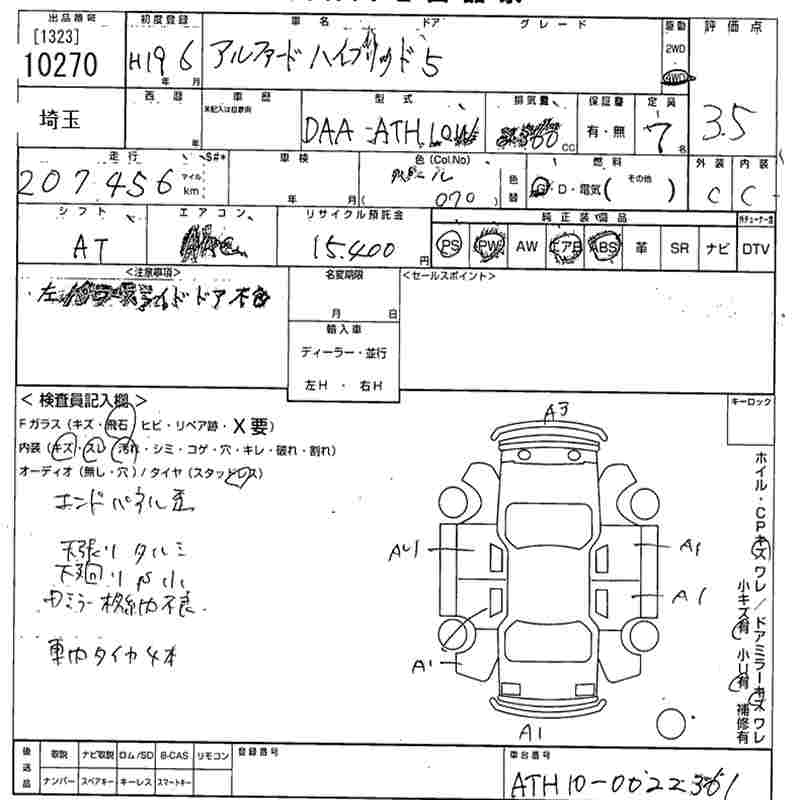 出品番号 初度登録 車名 ドア グレード 駆動 評価点
[1323]
10270
H19 6 年 月
アルファードハイブリッド 5
2WD
4WD
3.5
埼玉
西暦 年
車歴
未記入は自家用
型式
DAA-ATH10W
排気量 CC
保証書
有・無
定員
7名
走行 S#*
207456 マイル km
車検
年 月
色(Col.No)
070
色替
燃料
G・D・電気( その他 )
外装 内装
C C
シフト
AT
エアコン
リサイクル預託金
15.400 円
純正装備品
PS PW AW エアB ABS 革 SR ナビ DTV
<注意事項>
左 スライドドア不良
名変期限
月 日
<セールスポイント>
輸入車
ディーラー・並行
左H ・ 右H
<検査員記入欄>
Fガラス(キズ・飛石 ヒビ・リペア跡・X要)
内装(キズ・スレ・汚れ・シミ・コゲ・穴・キレ・破れ・割れ)
オーディオ(無し・穴)/タイヤ(スタッドレス)
エンドパネル歪
天張りタルミ
下廻り
カミラー格納不良
車内タイヤ4本
キーロック
A3
AU1
A1
A1
A1
A1
ホイル・CPキズワレ/ドアミラーキズワレ
小キズ有 小U有 補修有
後送品
取説 ナビ取説 ロム/SD B-CAS リモコン
ナンバー スペアキー キーレス スマートキー
登録番号
車台番号
ATH10-0022361